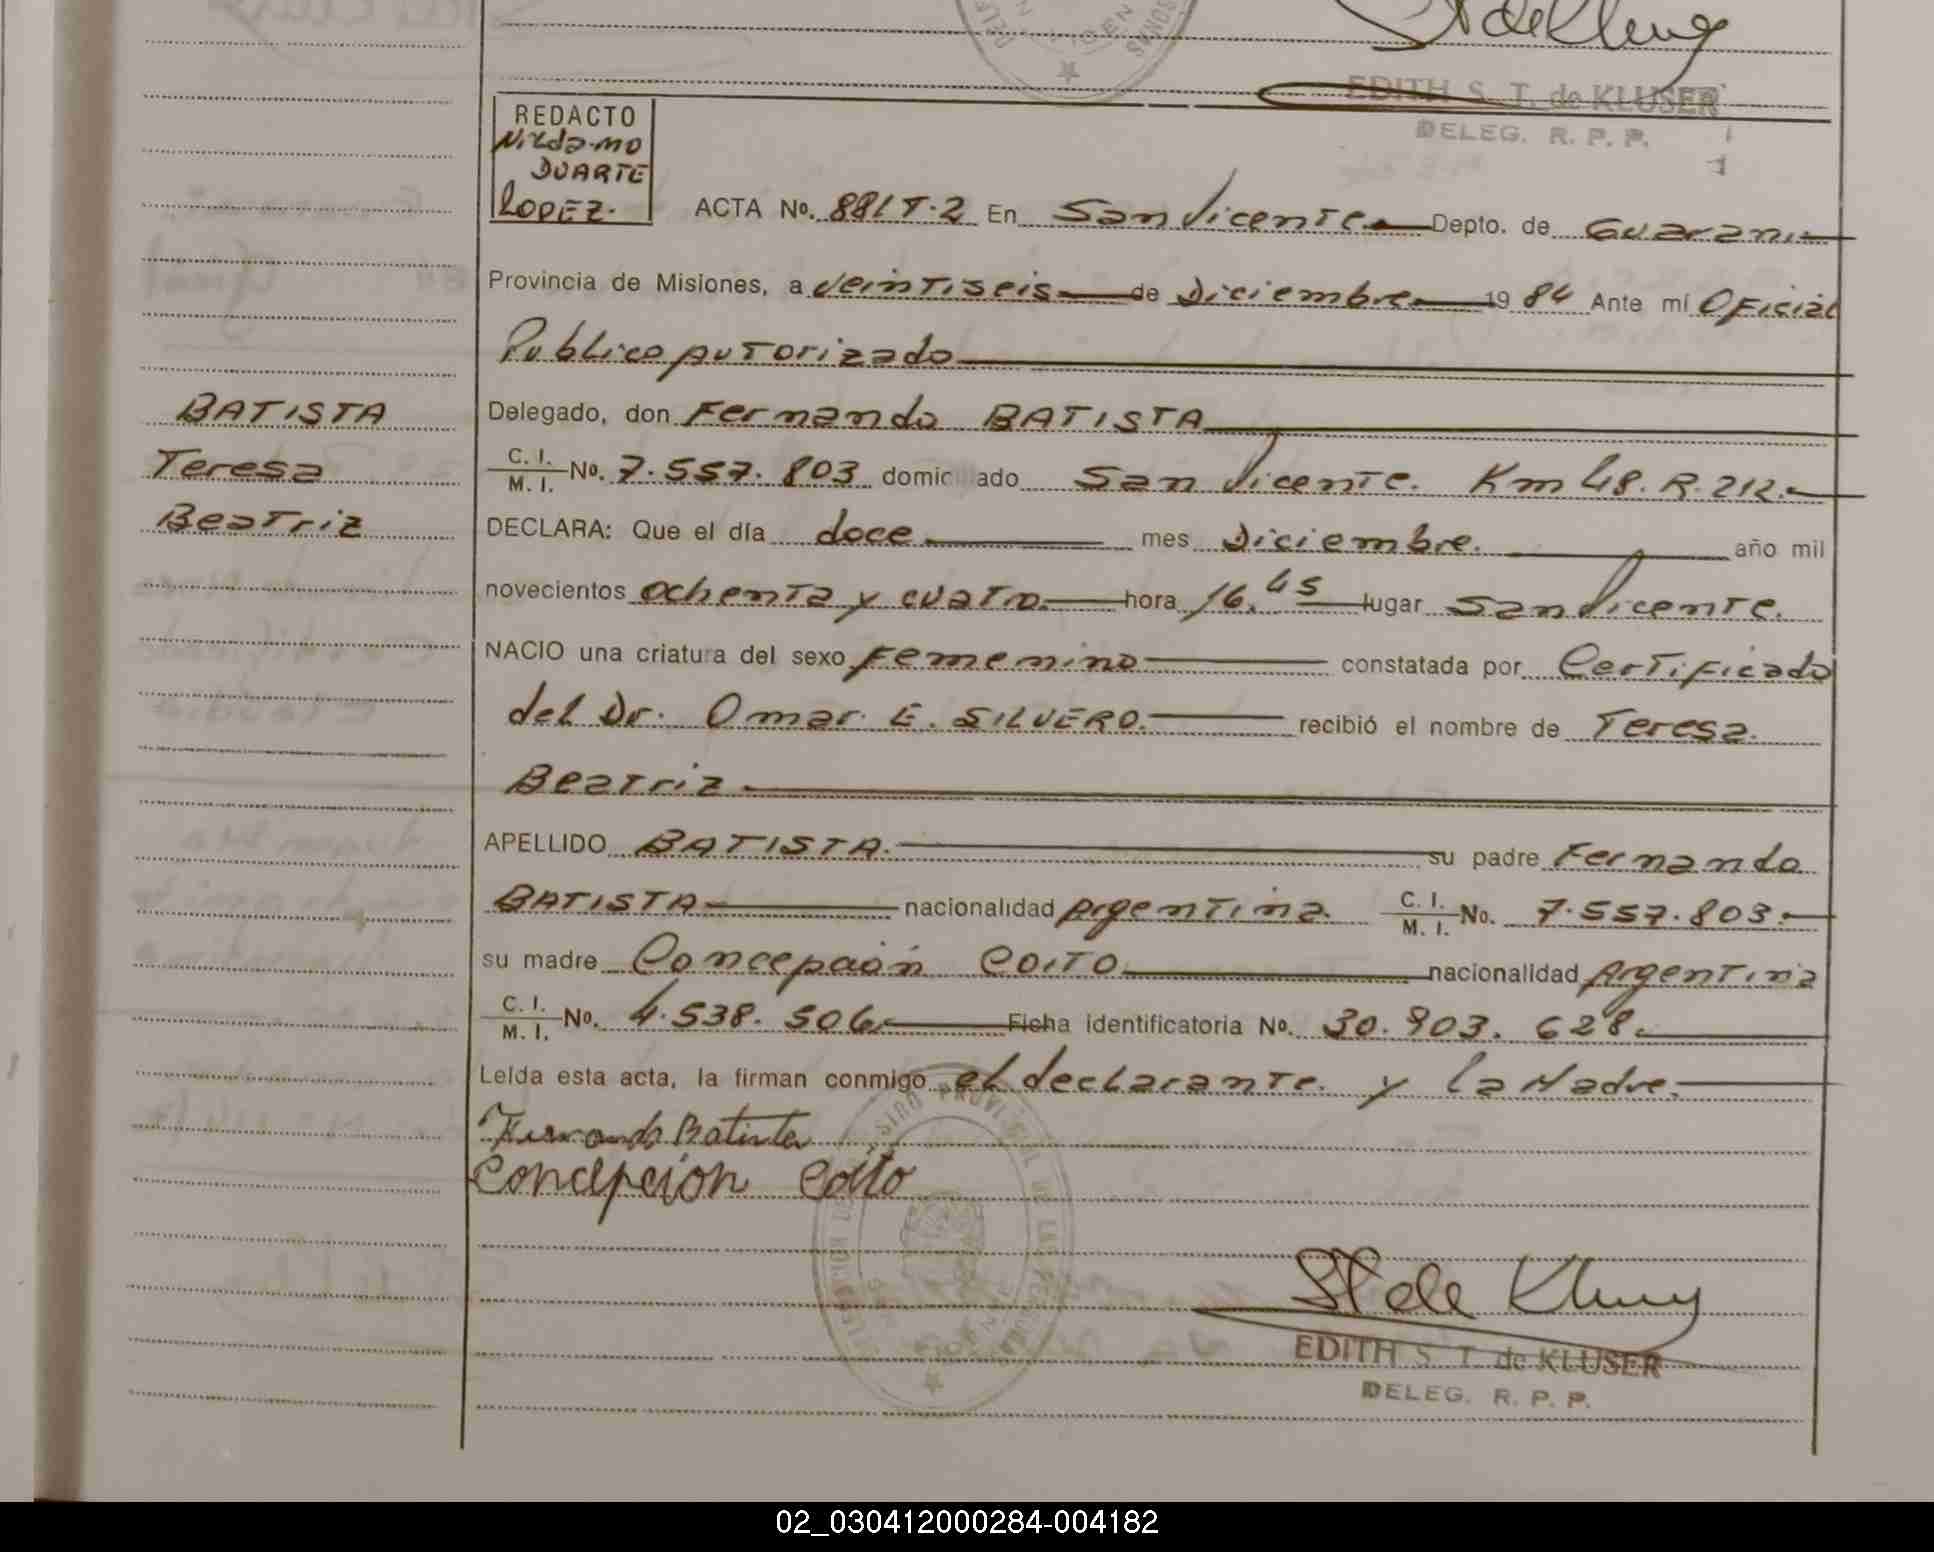 St de Kluser
EDITH S. T. de KLUSER
DELEG. R. P. P.
REDACTO
DUARTE
LOPEZ.
ACTA No. 881 T.2 En San Vicente Depto. de Guaraní
Provincia de Misiones, a veintiseis de Diciembre 1984 Ante mí Oficial
Publico autorizado
BATISTA
Teresa
Beatriz
Delegado, don Fernando BATISTA
C. I. / M. I. No. 7.557.803 domiciliado San Vicente. Km 48. R. 212.
DECLARA: Que el día doce mes Diciembre. año mil
novecientos ochenta y cuatro. hora 16,45 lugar San Vicente.
NACIO una criatura del sexo Femenino constatada por Certificado
del Dr. Omar E. SILVERO. recibió el nombre de Teresa
Beatriz
APELLIDO BATISTA. su padre Fernando
BATISTA nacionalidad Argentina. C. I. / M. I. No. 7.557.803.
su madre Concepción COITO nacionalidad Argentina
C. I. / M. I. No. 4.538.506 Ficha identificatoria No. 30.903.628.
Leída esta acta, la firman conmigo el declarante. y la Madre.
Fernando Batista
Concepcion Coito
St de Kluser
EDITH S. T. de KLUSER
DELEG. R. P. P.
02_030412000284-004182